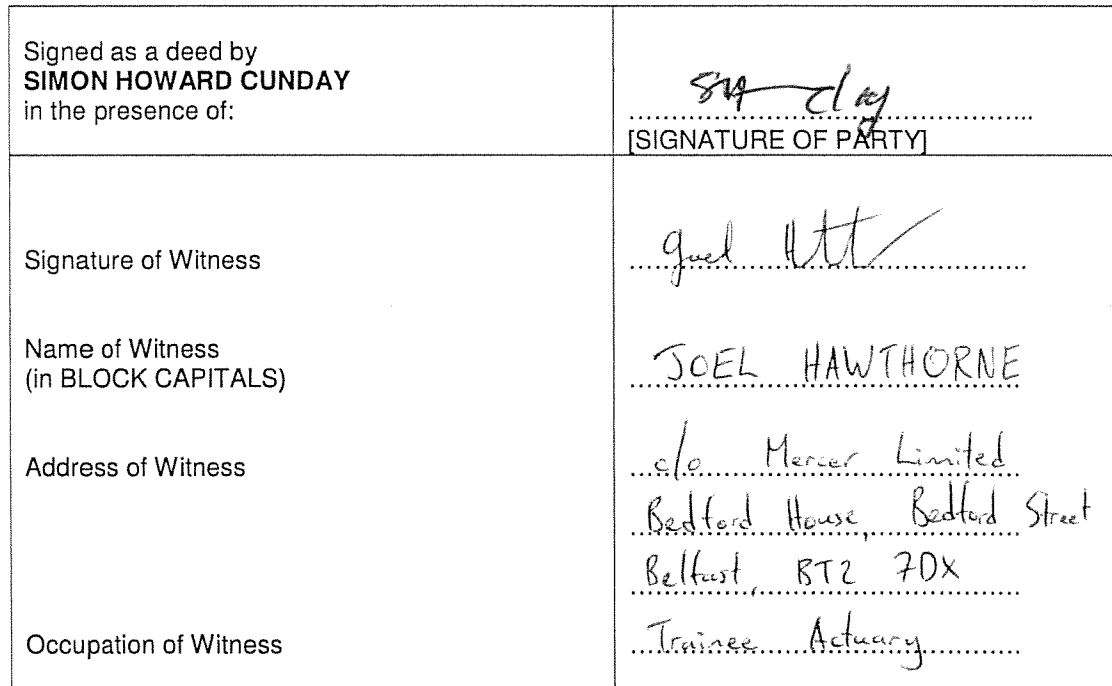 Signed as a deed by
SIMON HOWARD CUNDAY
in the presence of:
[SIGNATURE OF PARTY]
Signature of Witness
Name of Witness
(in BLOCK CAPITALS)
JOEL HAWTHORNE
Address of Witness
c/o Mercer Limited
Bedford House, Bedford Street
Belfast, BT2 7DX
Occupation of Witness
Trainee Actuary